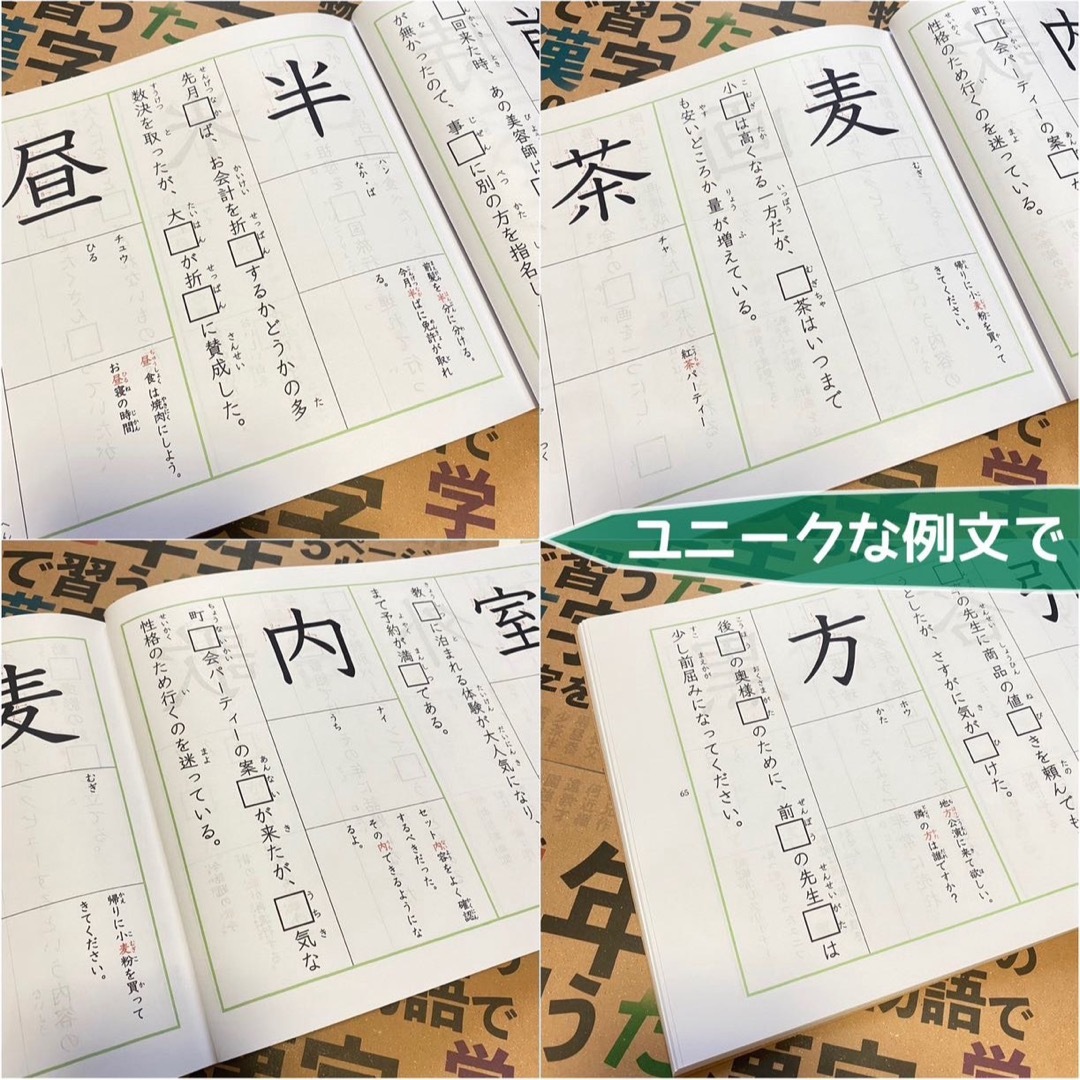 半
ハン
なか・ば
前髪を半分に分ける。
今月半ばに免許が取れ
る。
先月□ば、お会計を折□するかどうかの多
数決を取ったが、大□が折□に賛成した。
昼
チュウ
ひる
昼食は焼肉にしよう。
お昼寝の時間
回来た時、あの美容師は
が無かったので、事□に別の方を指名し
麦
むぎ
帰りに小麦粉を買って
きてください。
小□は高くなる一方だが、□茶はいつまで
も安いどころか量が増えている。
茶
チャ
紅茶パーティー
町□会パーティーの案
性格のため行くのを迷っている。
ユニークな例文で
室
教□に泊まれる体験が大人気になり、
まで予約が満□である。
内
ナイ
うち
セット内容をよく確認
するべきだった。
その内できるようにな
るよ。
町□会パーティーの案□が来たが、□気な
性格のため行くのを迷っている。
麦
むぎ
帰りに小麦粉を買って
きてください。
の先生に商品の値□きを頼んでも
としたが、さすがに気が□けた。
方
ホウ
かた
地方公演に来て欲しい。
隣の方は誰ですか?
後□の奥様□のために、前□の先生□は
少し前屈みになってください。
65